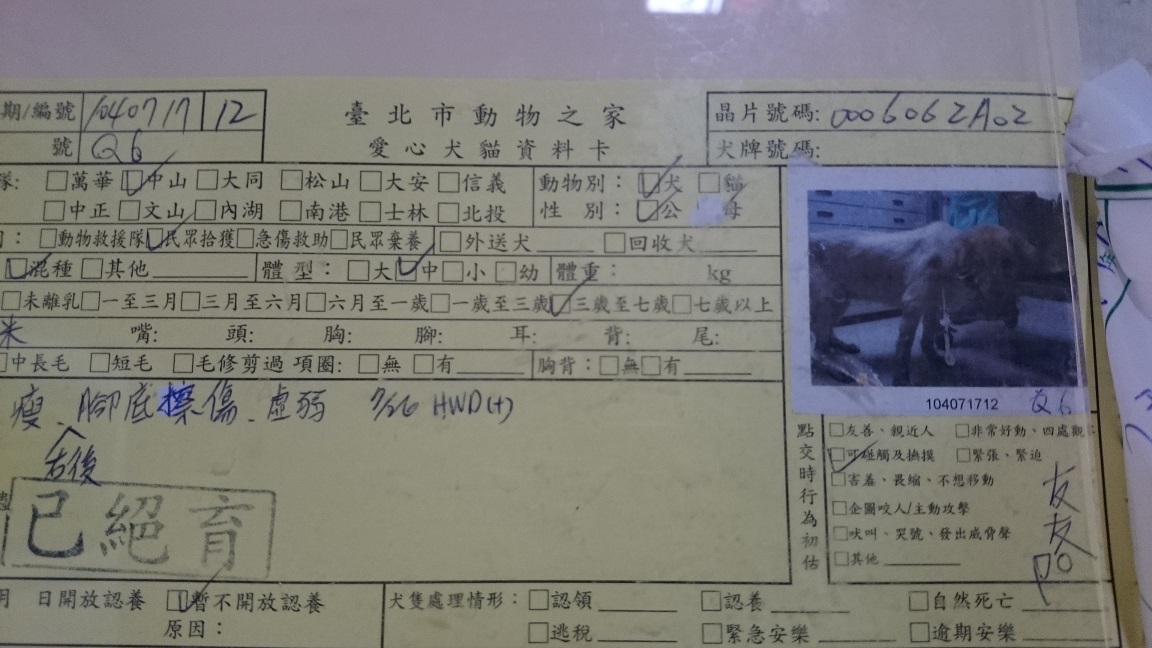 期/編號 1040717 12
臺北市動物之家
晶片號碼: 0006062A02
號 Q6
愛心犬貓資料卡
犬牌號碼:
隊: □萬華 ☑中山 □大同 □松山 □大安 □信義
動物別: ☑犬 □貓
□中正 □文山 □內湖 □南港 □士林 □北投
性別: ☑公 □母
: □動物救援隊 ☑民眾拾獲 □急傷救助 □民眾棄養 □外送犬 □回收犬
☑混種 □其他 體型: □大 ☑中 □小 □幼 體重: kg
□未離乳 □一至三月 □三月至六月 □六月至一歲 □一歲至三歲 ☑三歲至七歲 □七歲以上
米 嘴: 頭: 胸: 腳: 耳: 背: 尾:
□中長毛 □短毛 □毛修剪過 項圈: □無 □有 胸背: □無 □有
瘦、腳底擦傷、虛弱 7/26 HWD(+)
右後
已絕育
104071712 Q6
點交時行為初估
□友善、親近人 □非常好動、四處觀
☑可碰觸及撫摸 □緊張、緊迫
□害羞、畏縮、不想移動
□企圖咬人/主動攻擊
□吠叫、哭號、發出威脅聲
□其他
友友
月 日開放認養 ☑暫不開放認養
原因:
犬隻處理情形: □認領 □認養 □自然死亡
□逃稅 □緊急安樂 □逾期安樂